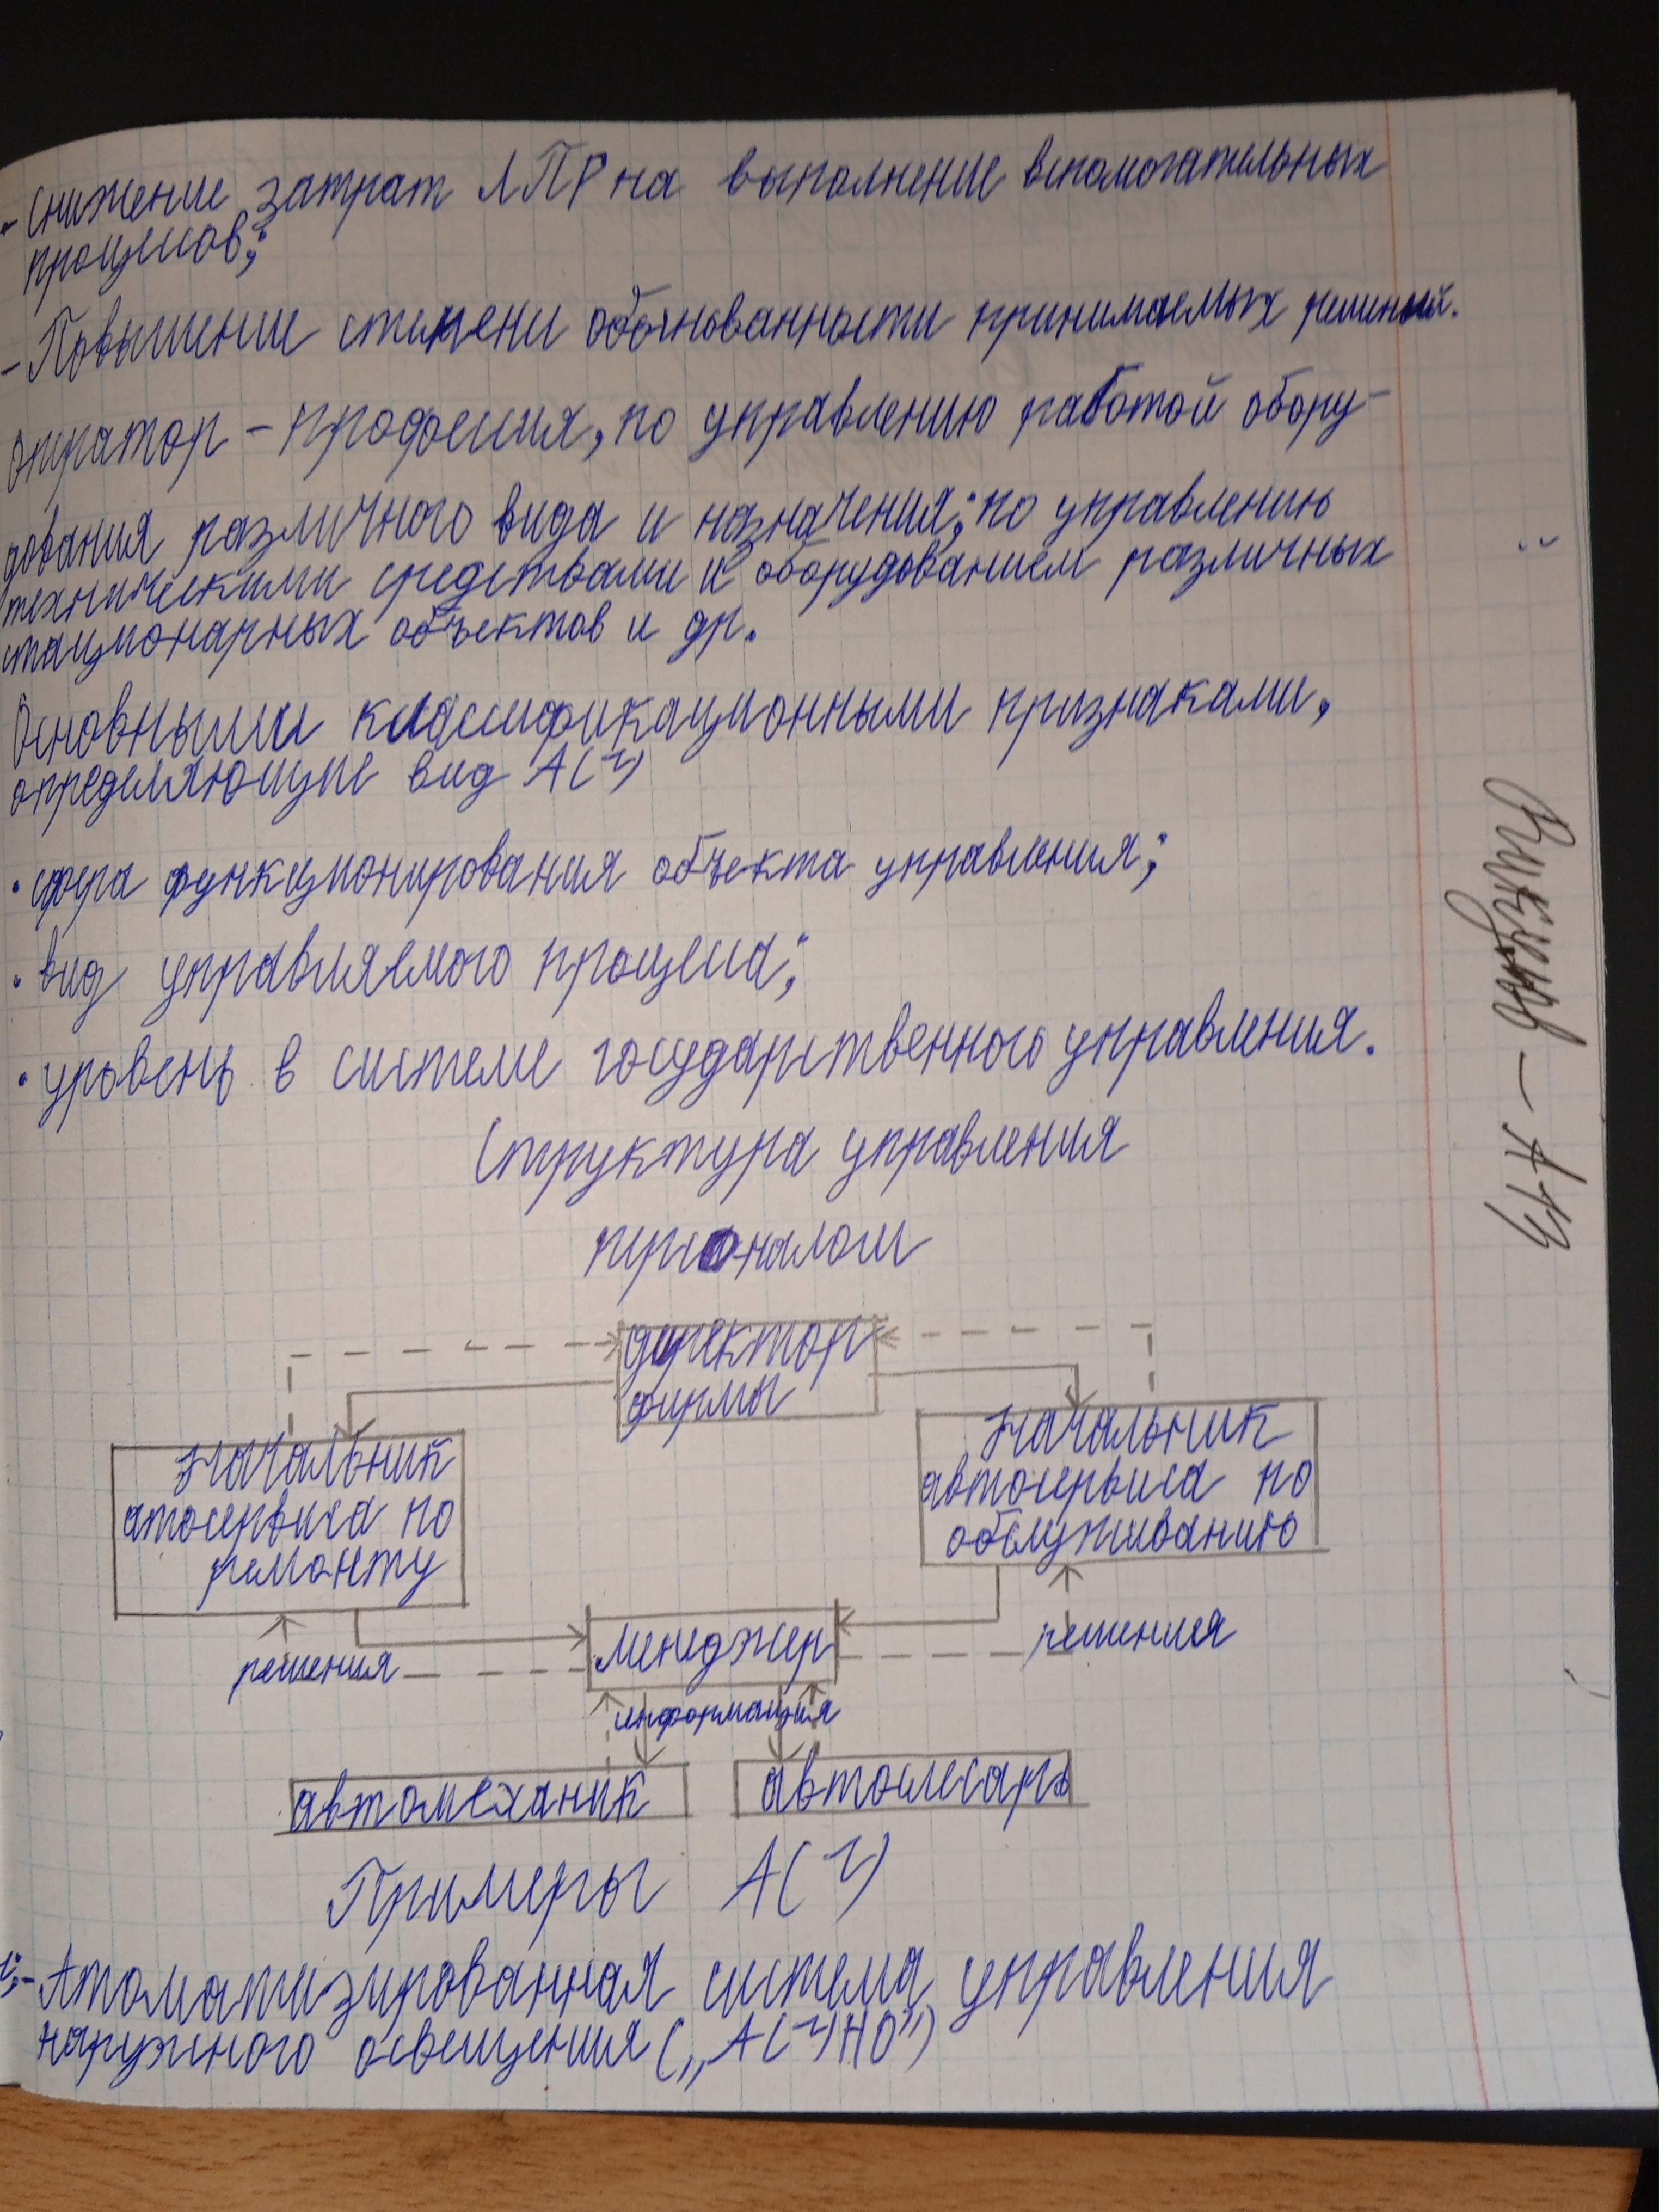 - снижение затрат ЛПР на выполнение вспомогательных
процессов;
- Повышение степени обоснованности принимаемых решений.
оператор - профессия, по управлению работой обору-
дования различного вида и назначения; по управлению
техническими средствами и оборудованием различных
стационарных объектов и др.
Основными классификационными признаками,
определяющие вид АСУ
• сфера функционирования объекта управления;
• вид управляемого процесса;
• уровень в системе государственного управления.
Структура управления
персоналом
директор
фирмы
начальник
атосервиса по
ремонту
начальник
автосервиса по
обслуживанию
решения
менеджер
решения
информация
автомеханик
автослесарь
Примеры АСУ
1. - Атоматизированная система управления
наружного освещения („АСУНО")